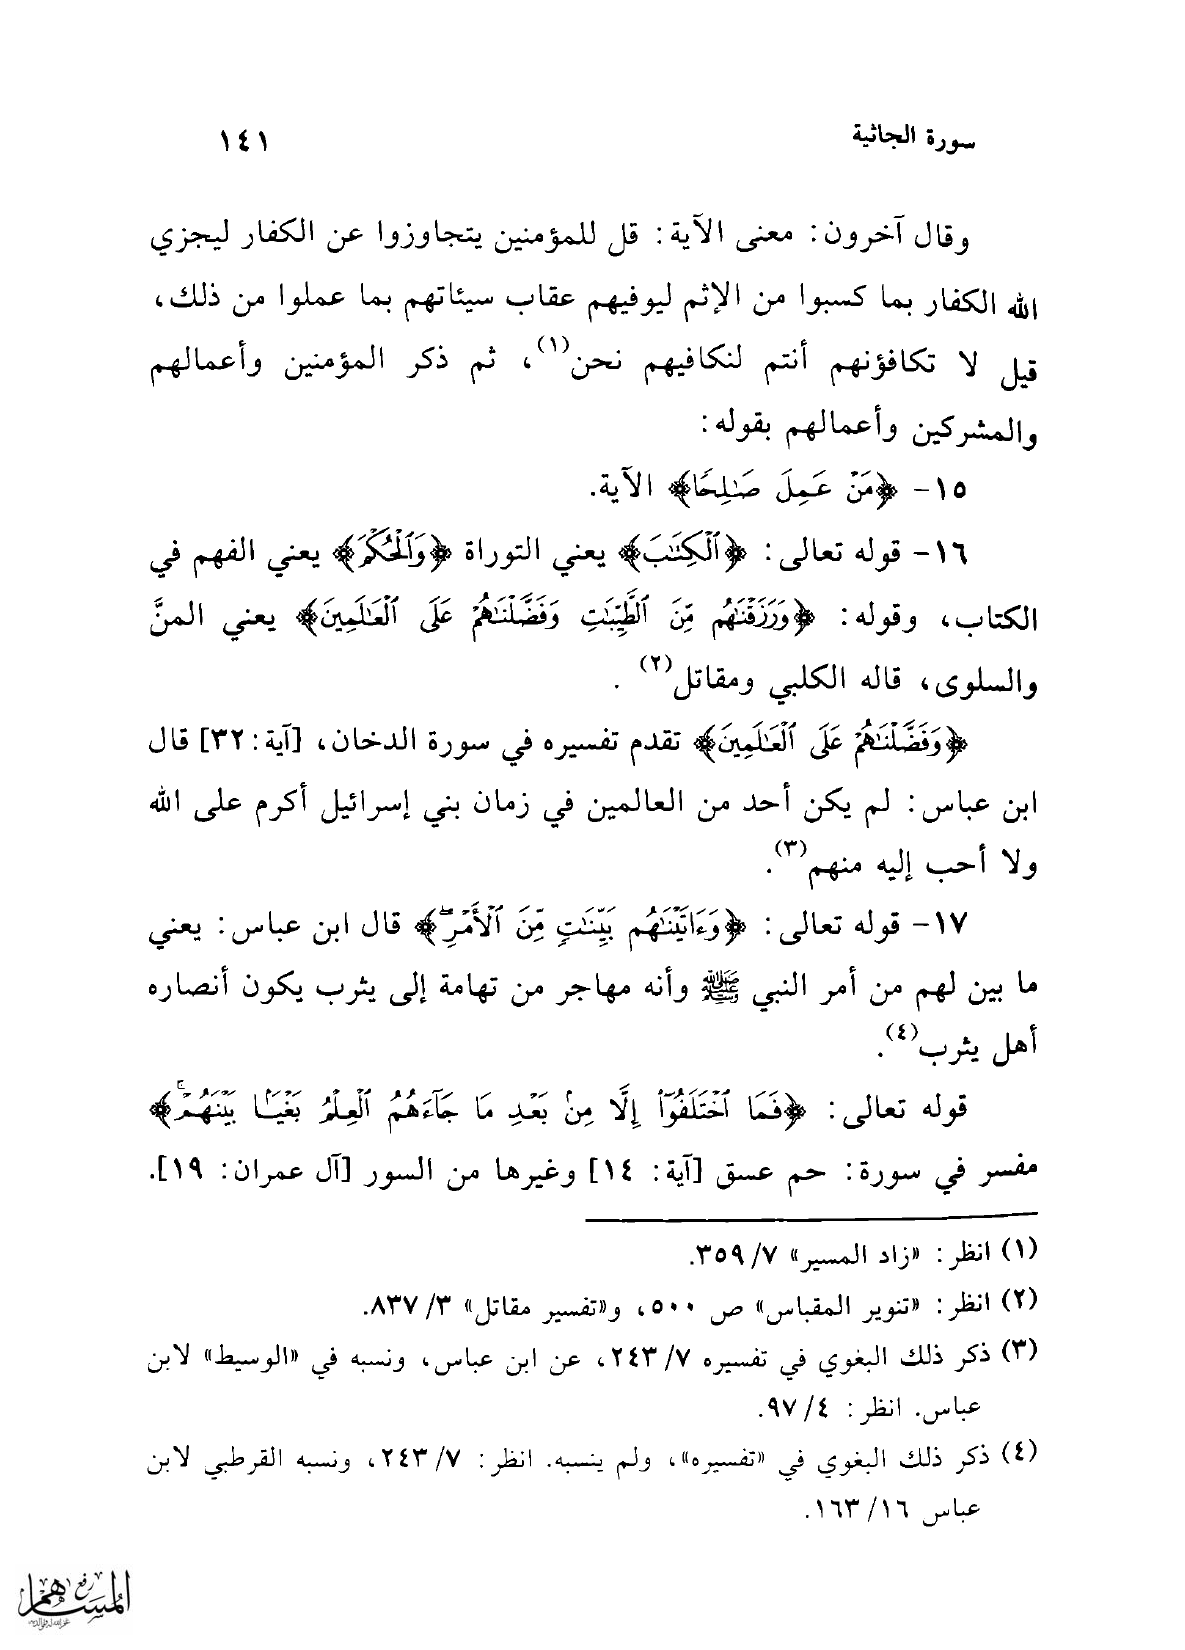 سورة الجاثية ١٤١
وقال آخرون: معنى الآية: قل للمؤمنين يتجاوزوا عن الكفار ليجزي
الله الكفار بما كسبوا من الإثم ليوفيهم عقاب سيئاتهم بما عملوا من ذلك،
قيل لا تكافؤنهم أنتم لنكافيهم نحن(١)، ثم ذكر المؤمنين وأعمالهم
والمشركين وأعمالهم بقوله:
١٥- ﴿مَنْ عَمِلَ صَـٰلِحًا﴾ الآية.
١٦- قوله تعالى: ﴿ٱلْكِتَـٰبَ﴾ يعني التوراة ﴿وَٱلْحُكْمَ﴾ يعني الفهم في
الكتاب، وقوله: ﴿وَرَزَقْنَـٰهُم مِّنَ ٱلطَّيِّبَـٰتِ وَفَضَّلْنَـٰهُمْ عَلَى ٱلْعَـٰلَمِينَ﴾ يعني المنَّ
والسلوى، قاله الكلبي ومقاتل(٢) .
﴿وَفَضَّلْنَـٰهُمْ عَلَى ٱلْعَـٰلَمِينَ﴾ تقدم تفسيره في سورة الدخان، [آية: ٣٢] قال
ابن عباس: لم يكن أحد من العالمين في زمان بني إسرائيل أكرم على الله
ولا أحب إليه منهم(٣).
١٧- قوله تعالى: ﴿وَءَاتَيْنَـٰهُم بَيِّنَـٰتٍ مِّنَ ٱلْأَمْرِ ۖ﴾ قال ابن عباس: يعني
ما بين لهم من أمر النبي ﷺ وأنه مهاجر من تهامة إلى يثرب يكون أنصاره
أهل يثرب(٤).
قوله تعالى: ﴿فَمَا ٱخْتَلَفُوٓا۟ إِلَّا مِنۢ بَعْدِ مَا جَآءَهُمُ ٱلْعِلْمُ بَغْيًۢا بَيْنَهُمْ ۚ﴾
مفسر في سورة: حم عسق [آية: ١٤] وغيرها من السور [آل عمران: ١٩].
(١) انظر: «زاد المسير» ٧/ ٣٥٩.
(٢) انظر: «تنوير المقباس» ص ٥٠٠، و«تفسير مقاتل» ٣/ ٨٣٧.
(٣) ذكر ذلك البغوي في تفسيره ٧/ ٢٤٣، عن ابن عباس، ونسبه في «الوسيط» لابن
عباس. انظر: ٤/ ٩٧.
(٤) ذكر ذلك البغوي في «تفسيره»، ولم ينسبه. انظر: ٧/ ٢٤٣، ونسبه القرطبي لابن
عباس ١٦/ ١٦٣.